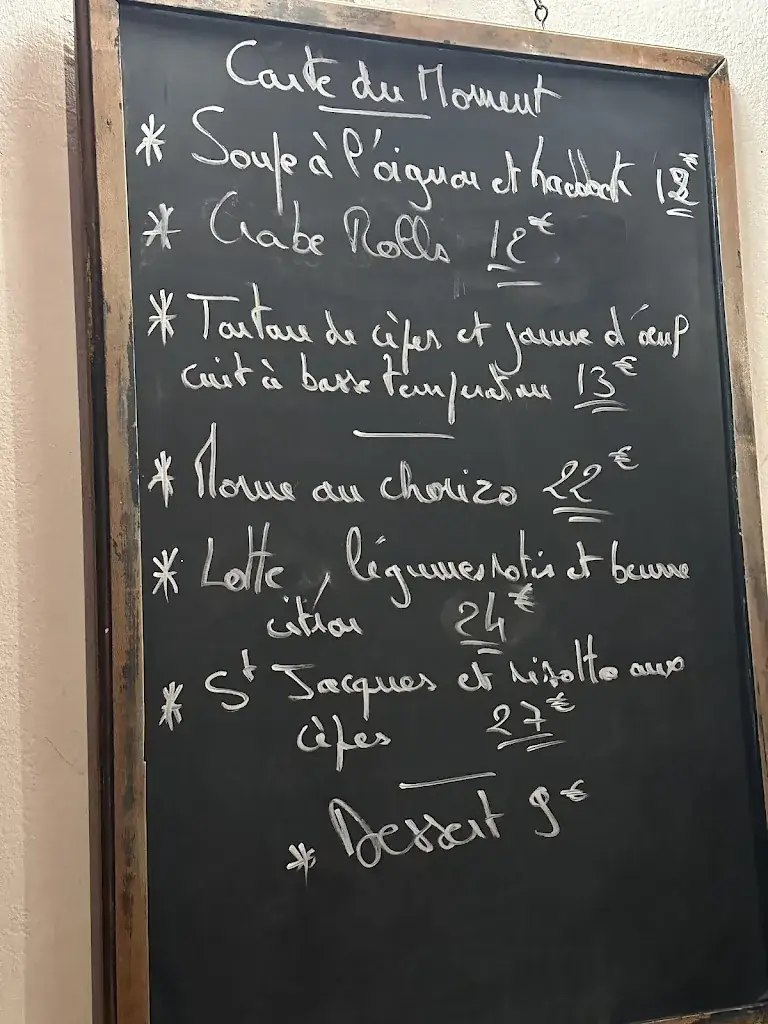 Carte du Moment
* Soupe à l'oignon et haddock 12€
* Crabe Rolls 12€
* Tartare de cèpes et jaune d'œuf
cuit à basse température 13€
* Morue au chorizo 22€
* Lotte, légumes rotis et beurre
citron 24€
* St Jacques et risotto aux
cèpes 27€
* Dessert 9€